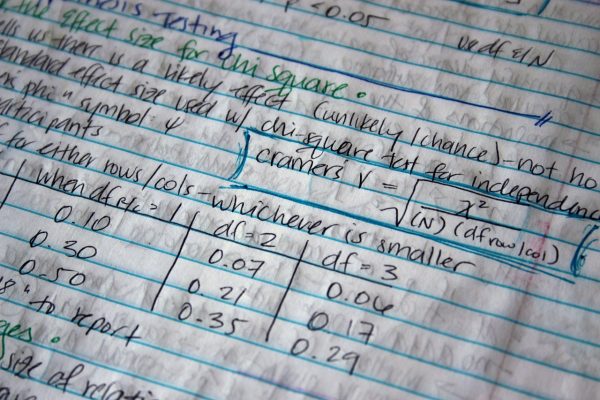 p < 0.05
use df & N
testing
effect size for chi square.
us there is a likely effect (unlikely / chance) - not no
standard effect size used w/ chi-square test for independence
phi" symbol: φ
participants
cramers V = √ x² / (N) (df row/col)
for either rows/cols - whichever is smaller
when df = 1 | df = 2 | df = 3
0.10 | 0.07 | 0.06
0.30 | 0.21 | 0.17
0.50 | 0.35 | 0.29
" to report
size of